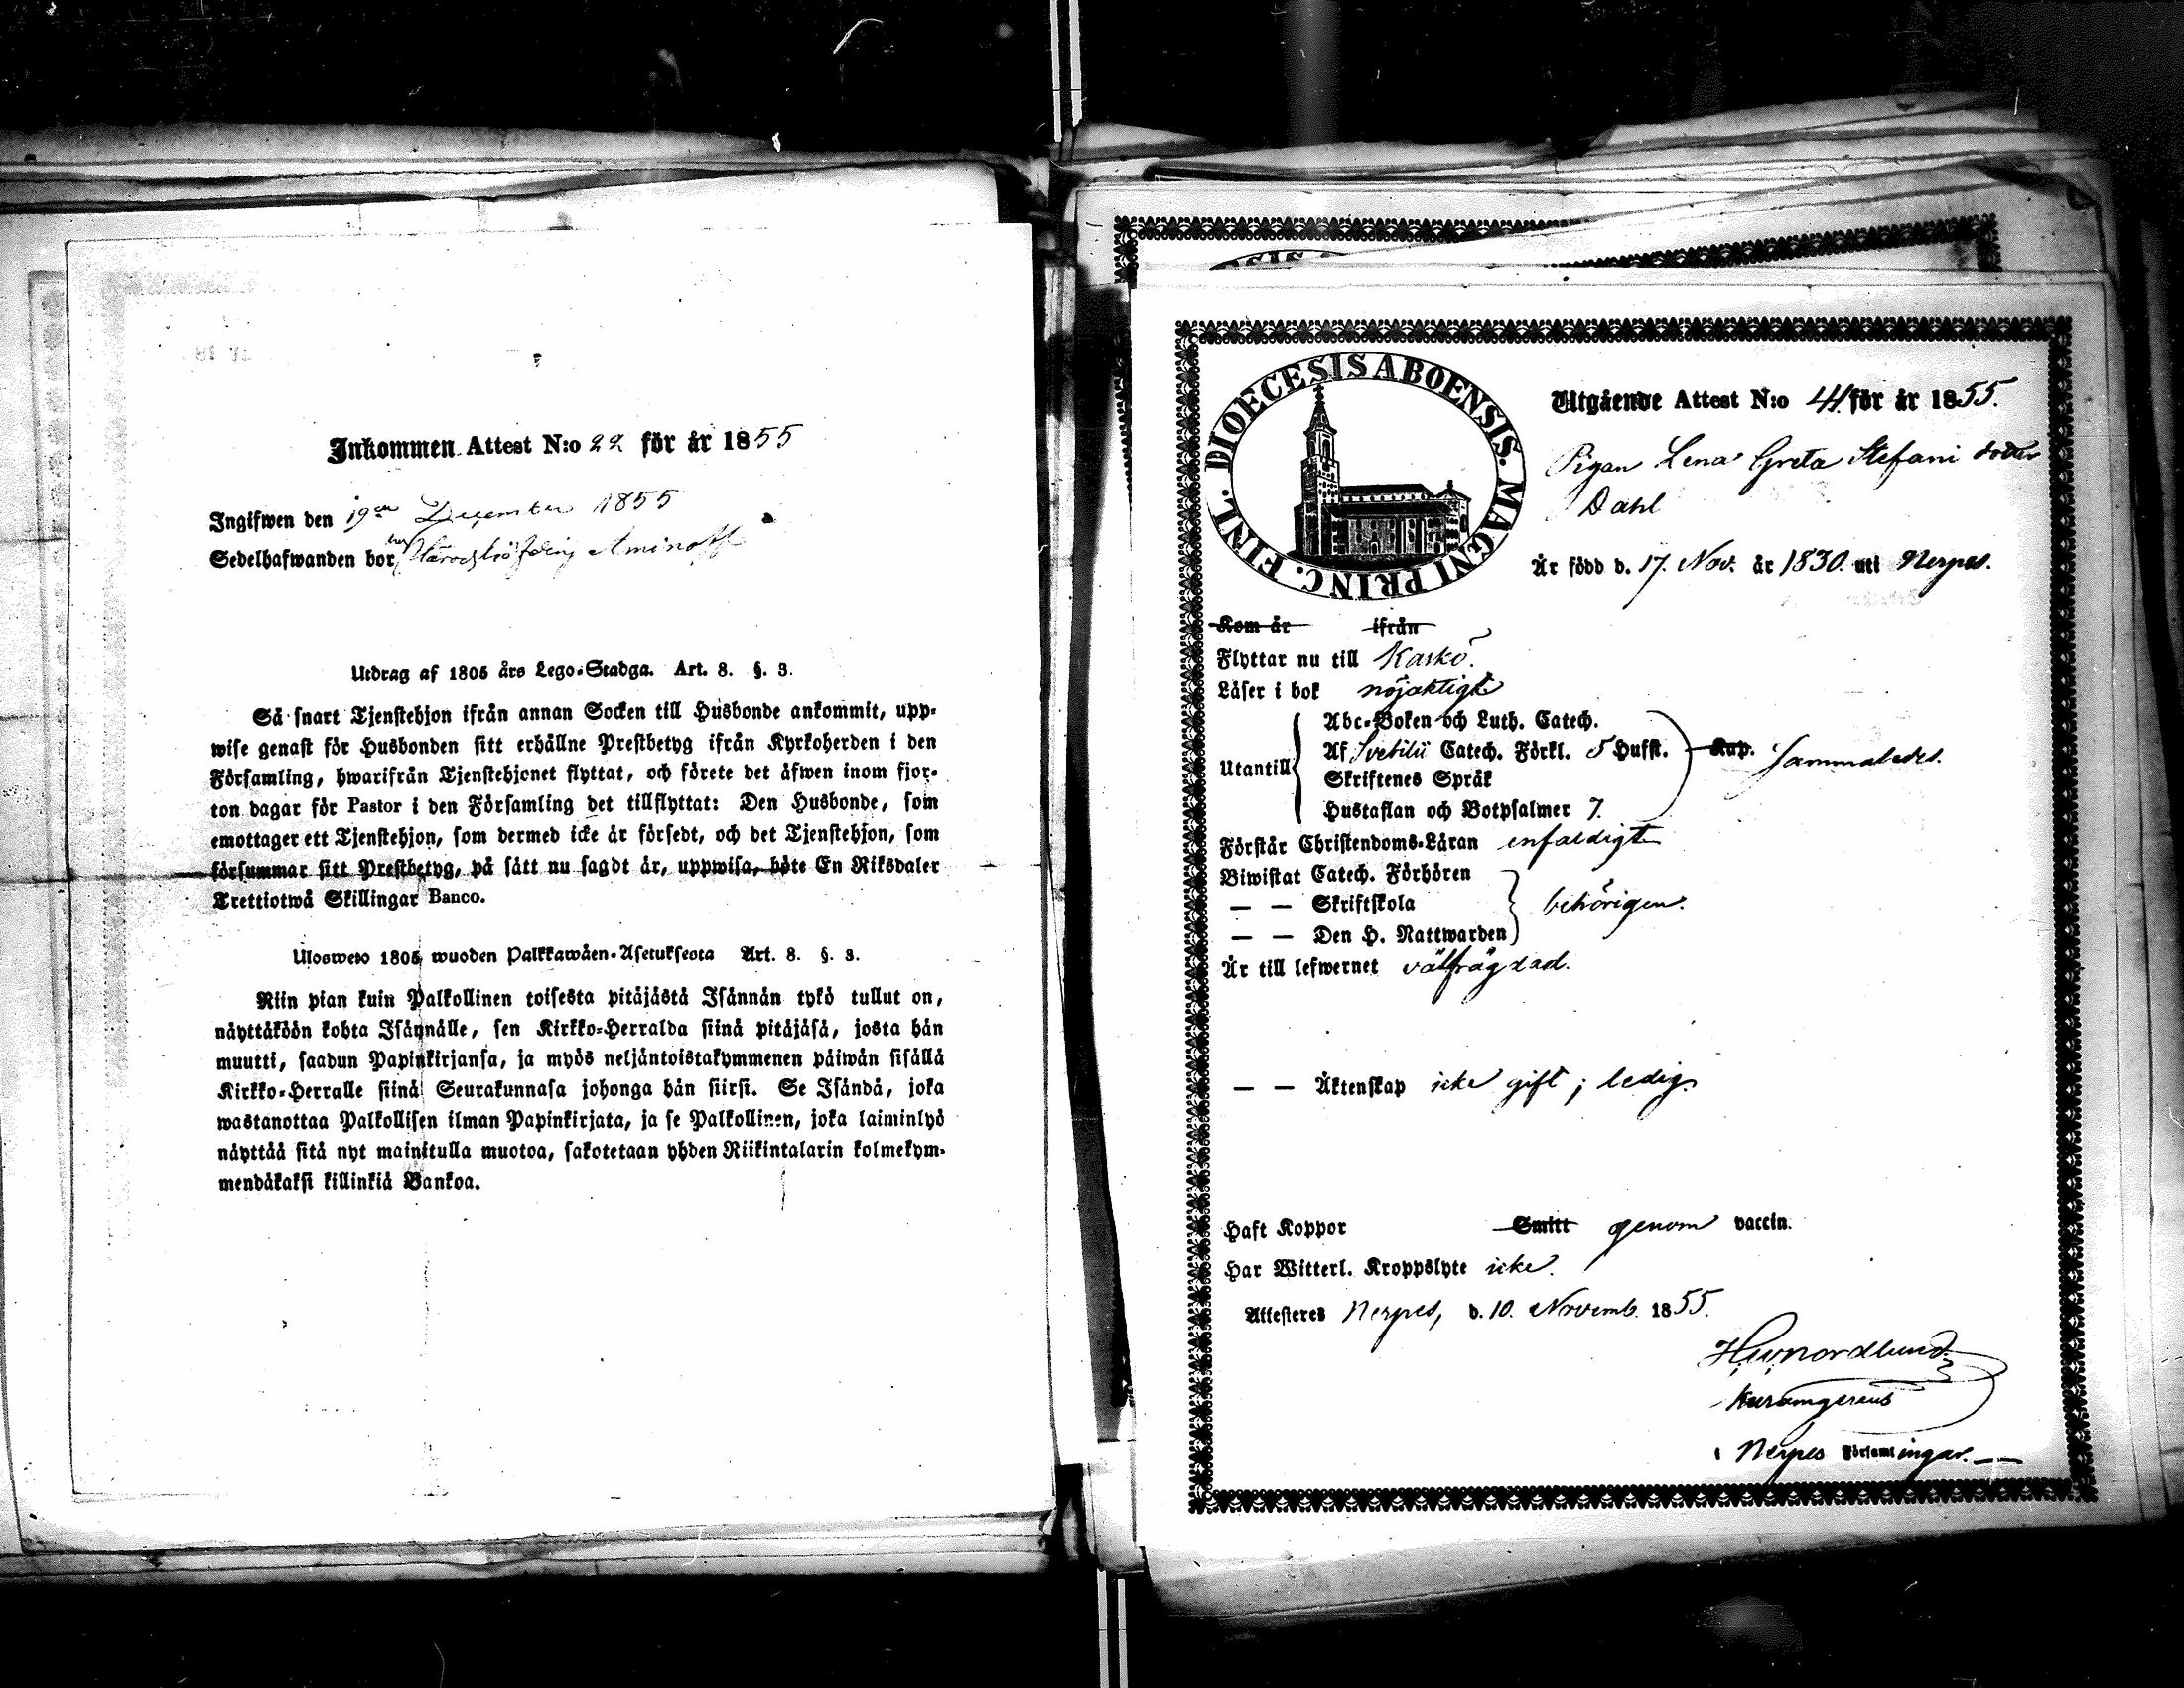 Inkommen Attest N:o 22 för år 1855
Ingifwen den 19de December 1855
Sedelhafwanden bor hos Häradshöfding Aminoff
Utdrag af 1805 års Lego-Stadga. Art. 8. §. 3.
Så snart Tjenstehjon ifrån annan Socken till Husbonde ankommit, upp-
wise genast för Husbonden sitt erhållne Prestbetyg ifrån Kyrkoherden i den
Församling, hwarifrån Tjenstehjonet flyttat, och förete det äfwen inom fjor-
ton dagar för Pastor i den Församling det tillflyttat: Den Husbonde, som
emottager ett Tjenstehjon, som dermed icke är försedt, och det Tjenstehjon, som
försummar sitt Prestbetyg, på sätt nu sagdt är, uppwisa, böte En Riksdaler
Trettiotwå Skillingar Banco.
Ulosweto 1805 wuoden Palkkawäen-Asetuksesta Art. 8. §. 3.
Niin pian kuin Palkollinen toisesta pitäjästä Isännän tykö tullut on,
näyttäköön kohta Isännälle, sen Kirkko-Herralda siinä pitäjäsä, josta hän
muutti, saadun Papinkirjansa, ja myös neljäntoistakymmenen päiwän sisällä
Kirkko-Herralle siinä Seurakunnasa johonga hän siirsi. Se Isändä, joka
wastanottaa Palkollisen ilman Papinkirjata, ja se Palkollinen, joka laiminlyö
näyttää sitä nyt mainitulla muotoa, sakotetaan yhden Riikintalarin kolmekym-
mendäkaksi killinkiä Bankoa.
DIOECESIS ABOENSIS. MAGNI PRINC. FINL.
Utgående Attest N:o 44 för år 1855.
Pigan Lena Greta Stefani dotter
Dahl
Är född d. 17. Nov. år 1830. uti Nerpes.
Kom år ifrån
Flyttar nu till Kaskö.
Läser i bok nöjaktigt
Abc-Boken och Luth. Catech.
Utantill Af Svebilii Catech. Förkl. 5 Hufst. Kap. Sammaledes.
Skriftenes Språk
Hustaflan och Botpsalmer 7.
Förstår Christendoms-Läran enfaldigt
Biwistat Catech. Förhören
— — Skriftskola behörigen.
— — Den H. Nattwarden
Är till lefwernet välfrägdad.
— — Äktenskap icke gift; ledig.
Haft Koppor Smitt genom vaccin.
Har Witterl. Kroppslyte icke.
Attesteres Nerpes, d. 10. Novemb. 1855.
Nordlund
i Nerpes Församlingar.